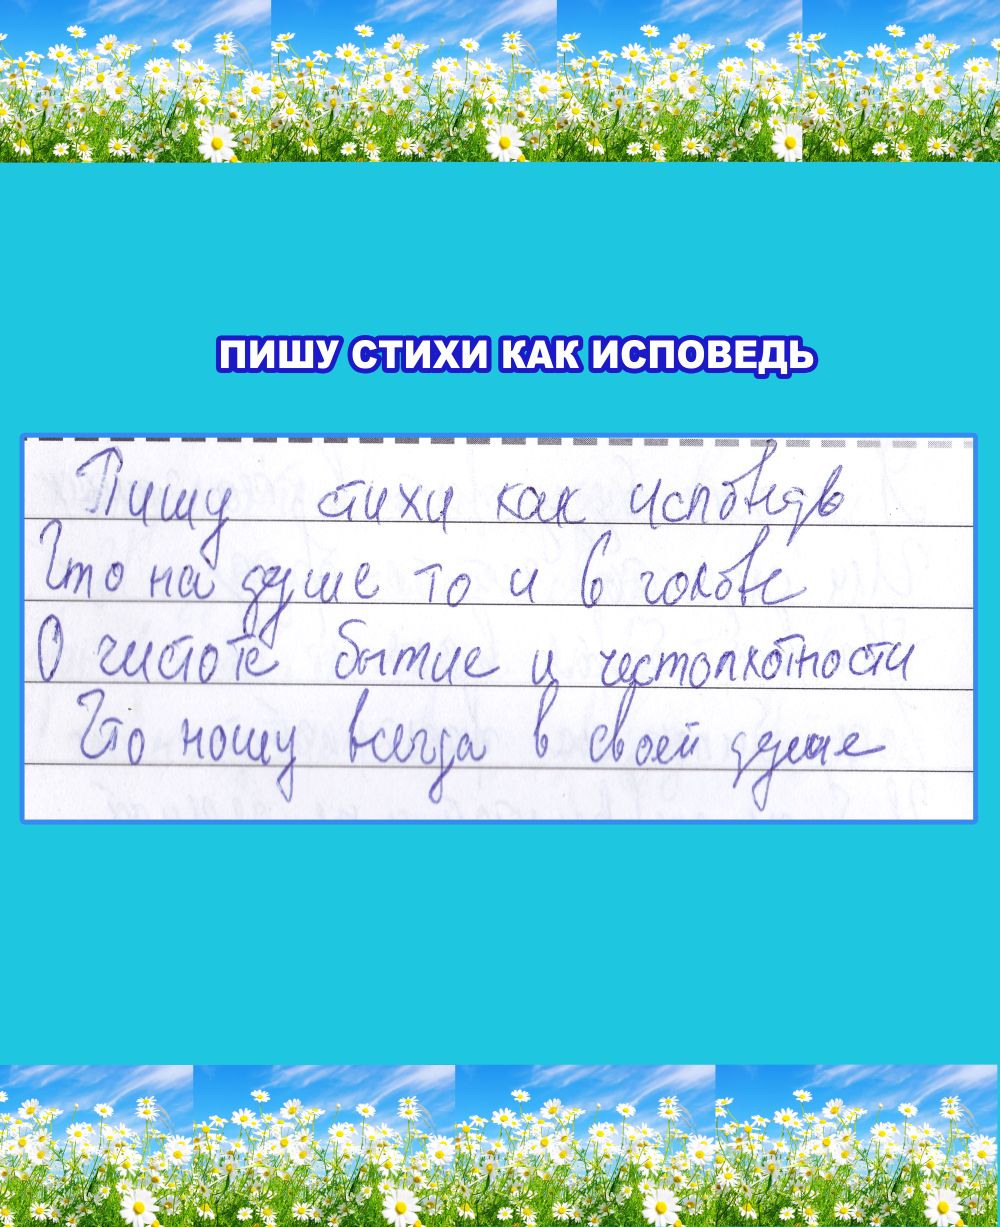 ПИШУ СТИХИ КАК ИСПОВЕДЬ
Пишу стихи как исповедь
Что на душе то и в голове
О чистоте бытие и честоплотности
Что ношу всегда в своей душе